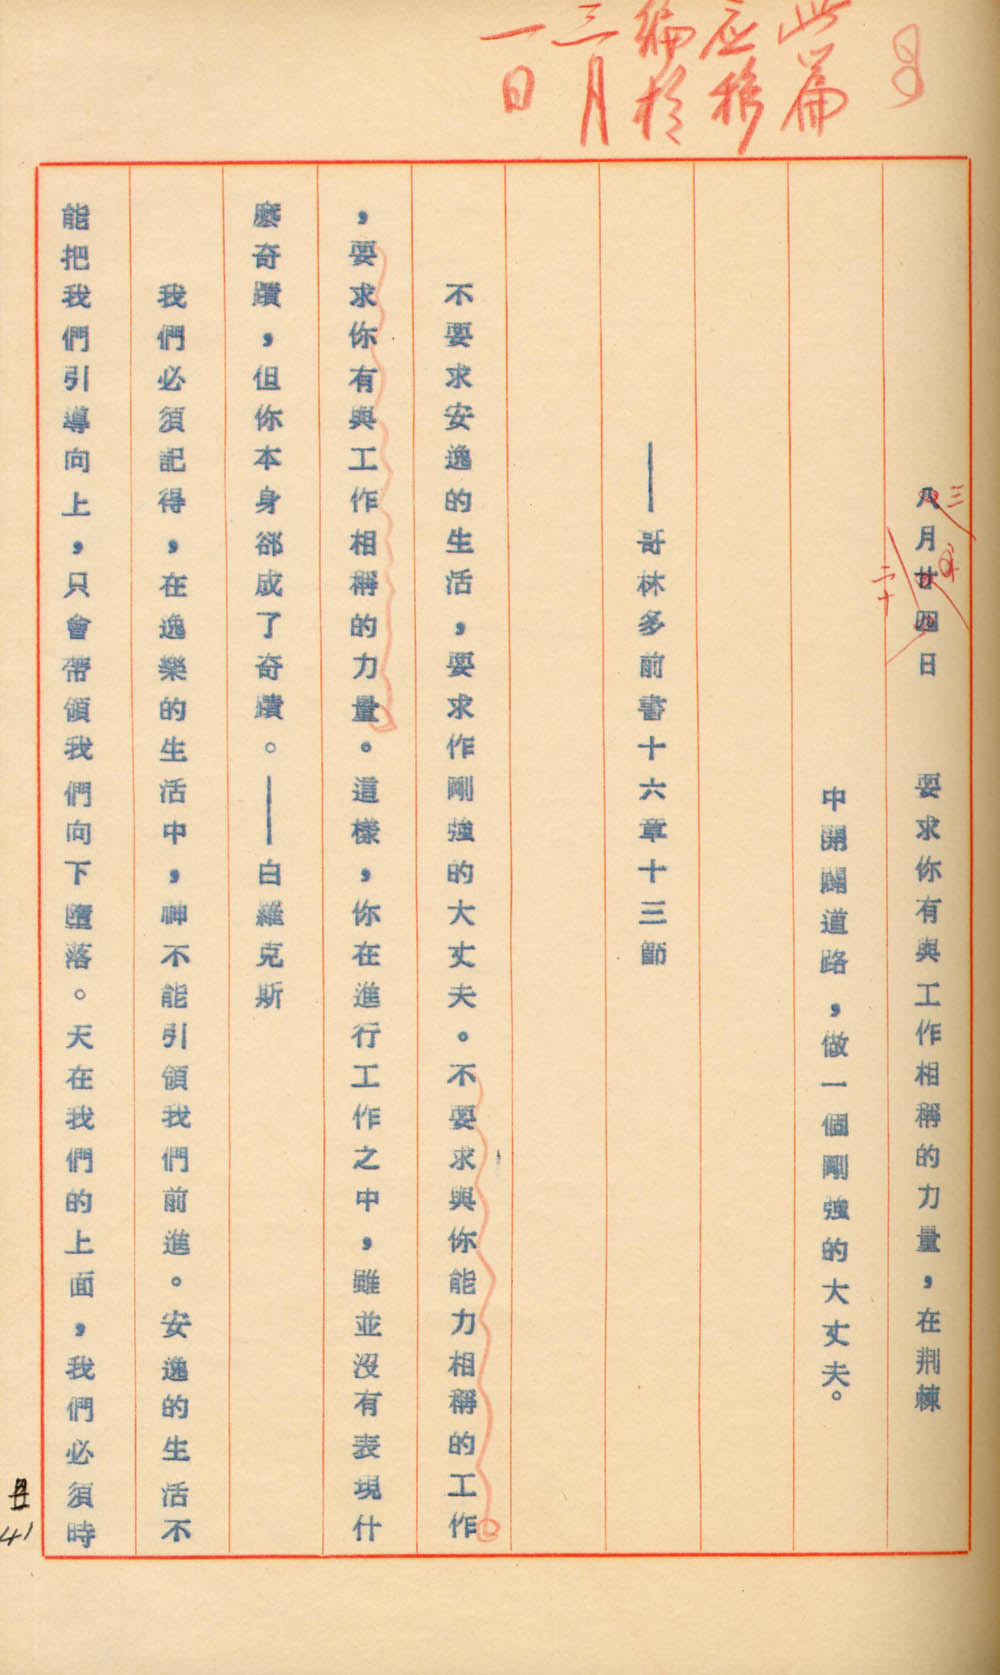 此篇
应移
编於
三月
一日
八月廿四日　要求你有與工作相稱的力量，在荆棘
三
二十
中開闢道路，做一個剛強的大丈夫。
——哥林多前書十六章十三節
不要求安逸的生活，要求作剛強的大丈夫。不要求與你能力相稱的工作
，要求你有與工作相稱的力量。這樣，你在進行工作之中，雖並沒有表現什
麽奇蹟，但你本身卻成了奇蹟。——白羅克斯
我們必須記得，在逸樂的生活中，神不能引領我們前進。安逸的生活不
能把我們引導向上，只會帶領我們向下墮落。天在我們的上面，我們必須時
丑
41